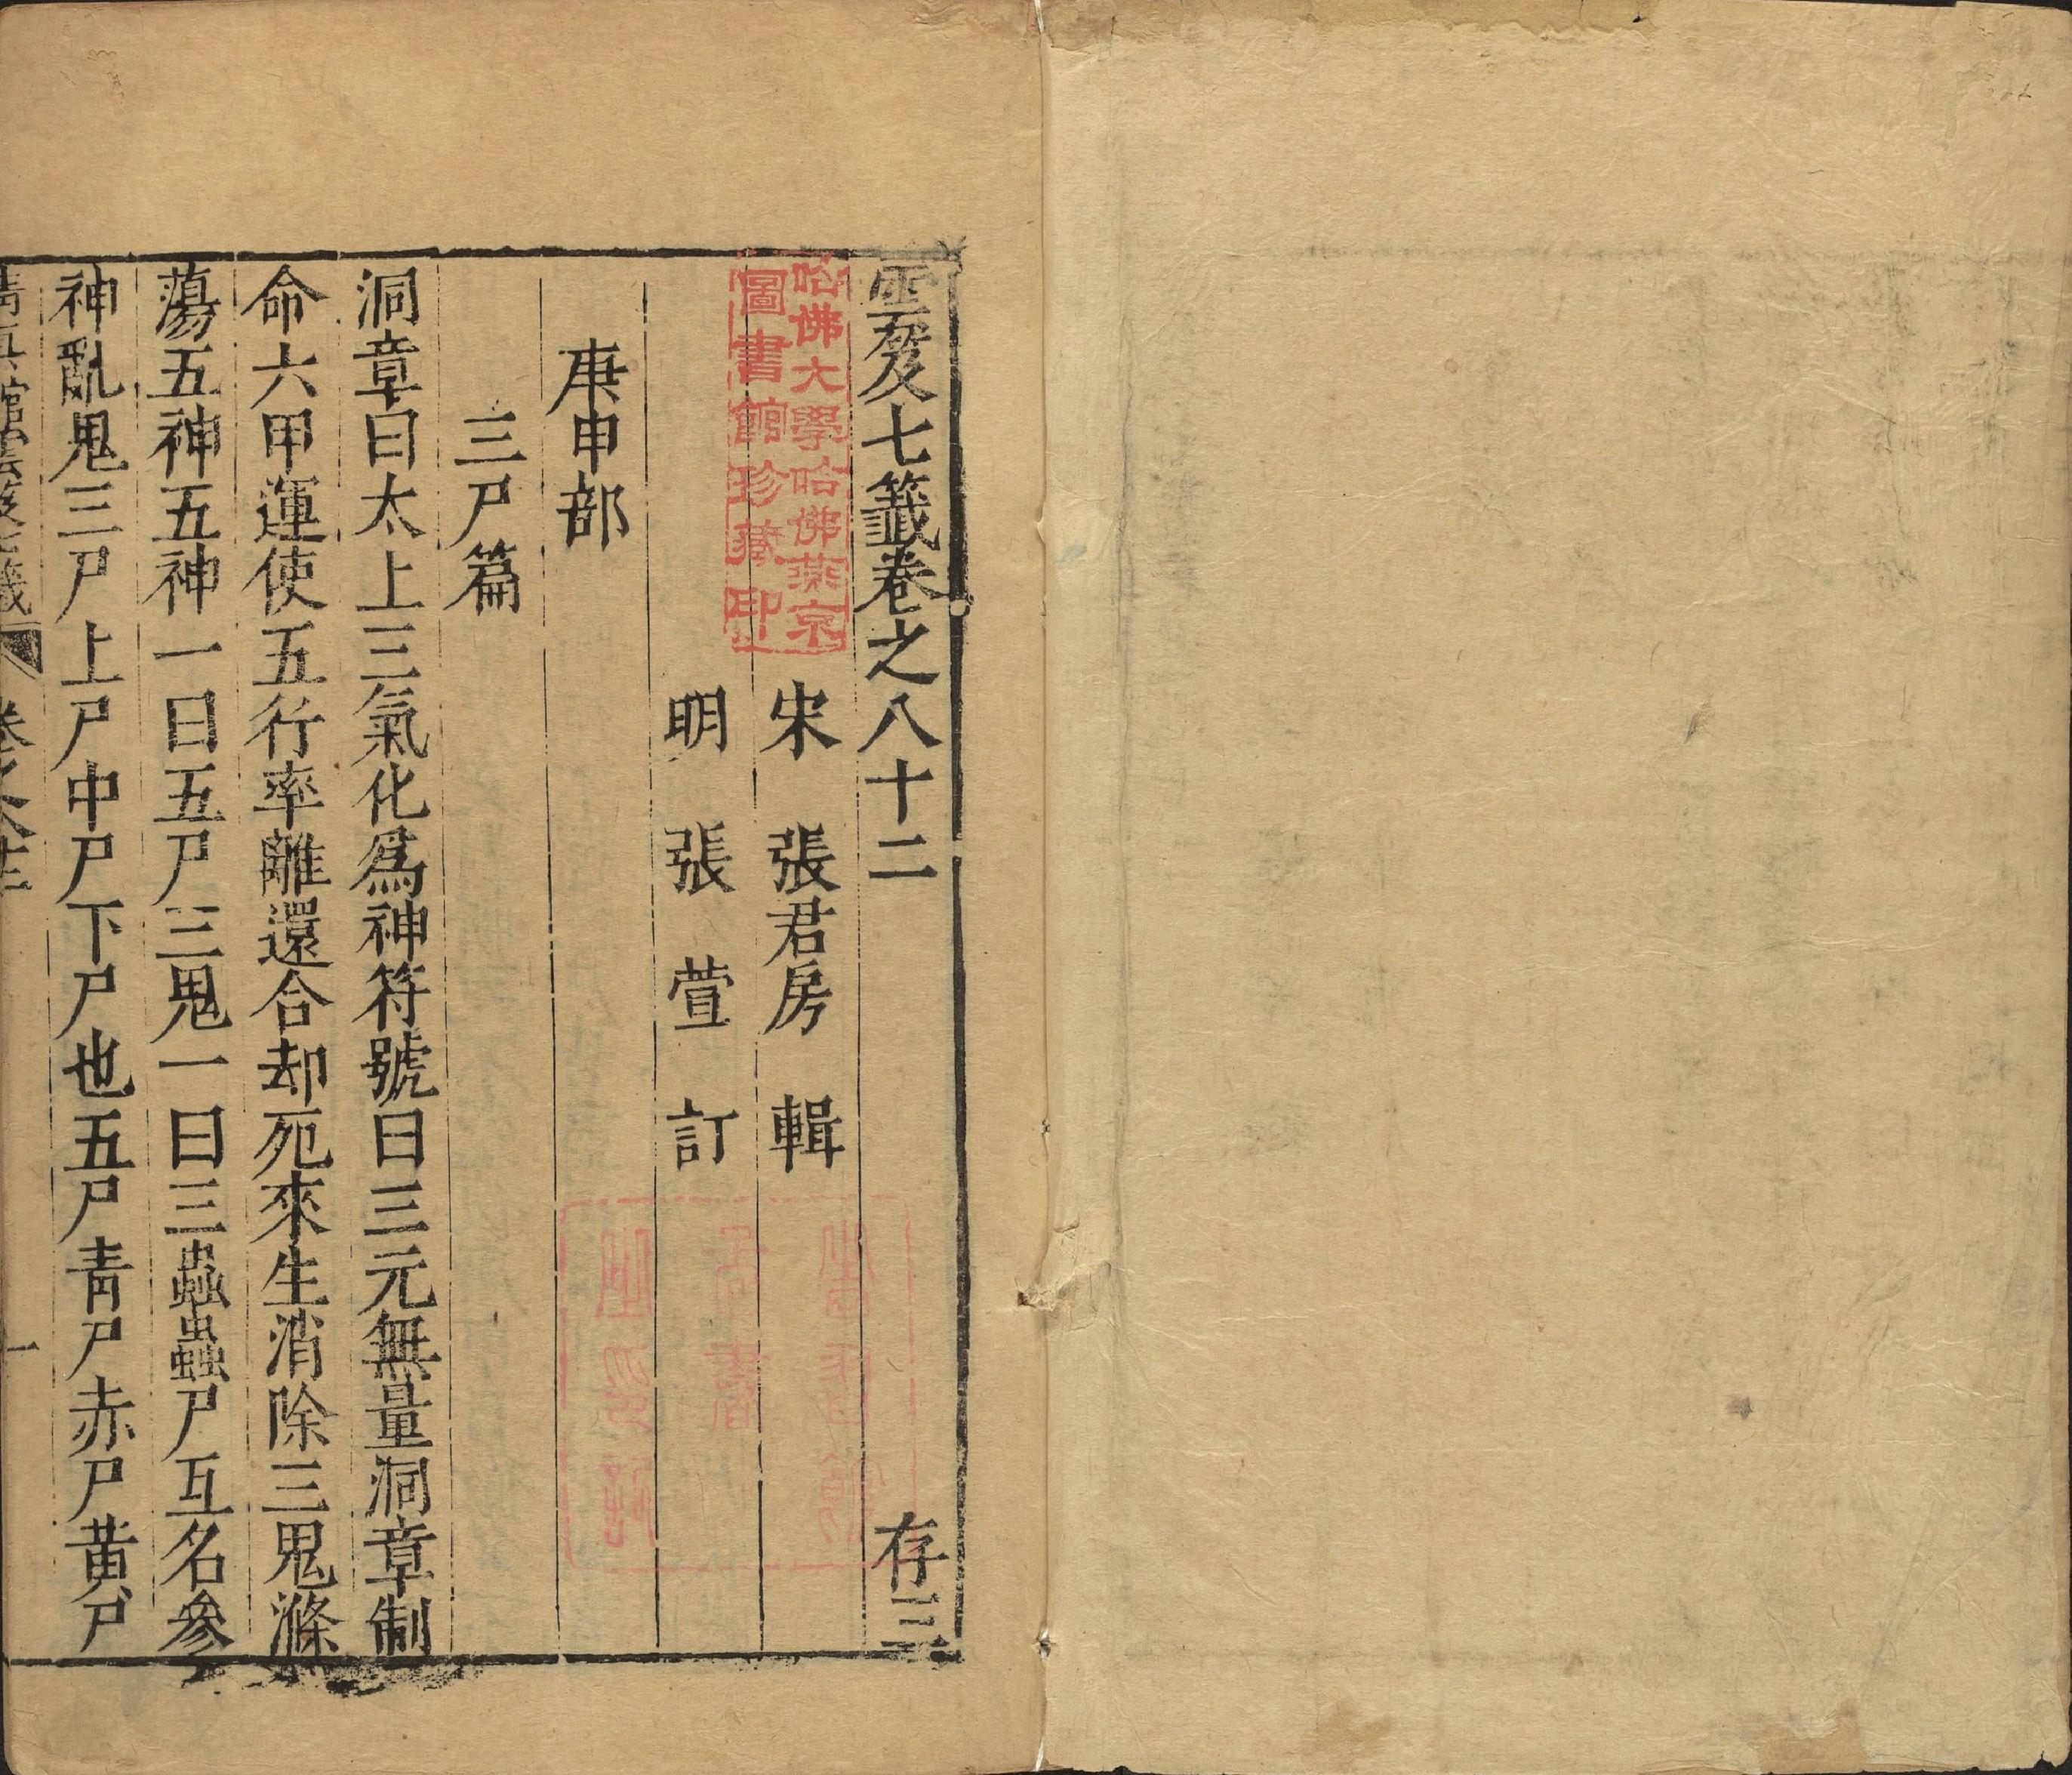 雲笈七籤卷之八十二 存三
宋 張君房 輯
明 張萱 訂
庚申部
三尸篇
洞章曰太上三氣化爲神符號曰三元無量洞章制
命六甲運使五行率離還合却死來生消除三鬼滌
蕩五神五神一曰五尸三鬼一曰三蟲蟲尸互名參
神亂鬼三尸上尸中尸下尸也五尸青尸赤尸黃尸
清真館雲笈七籤 卷之八十二 一
哈佛大學哈佛燕京
圖書館珍藏印